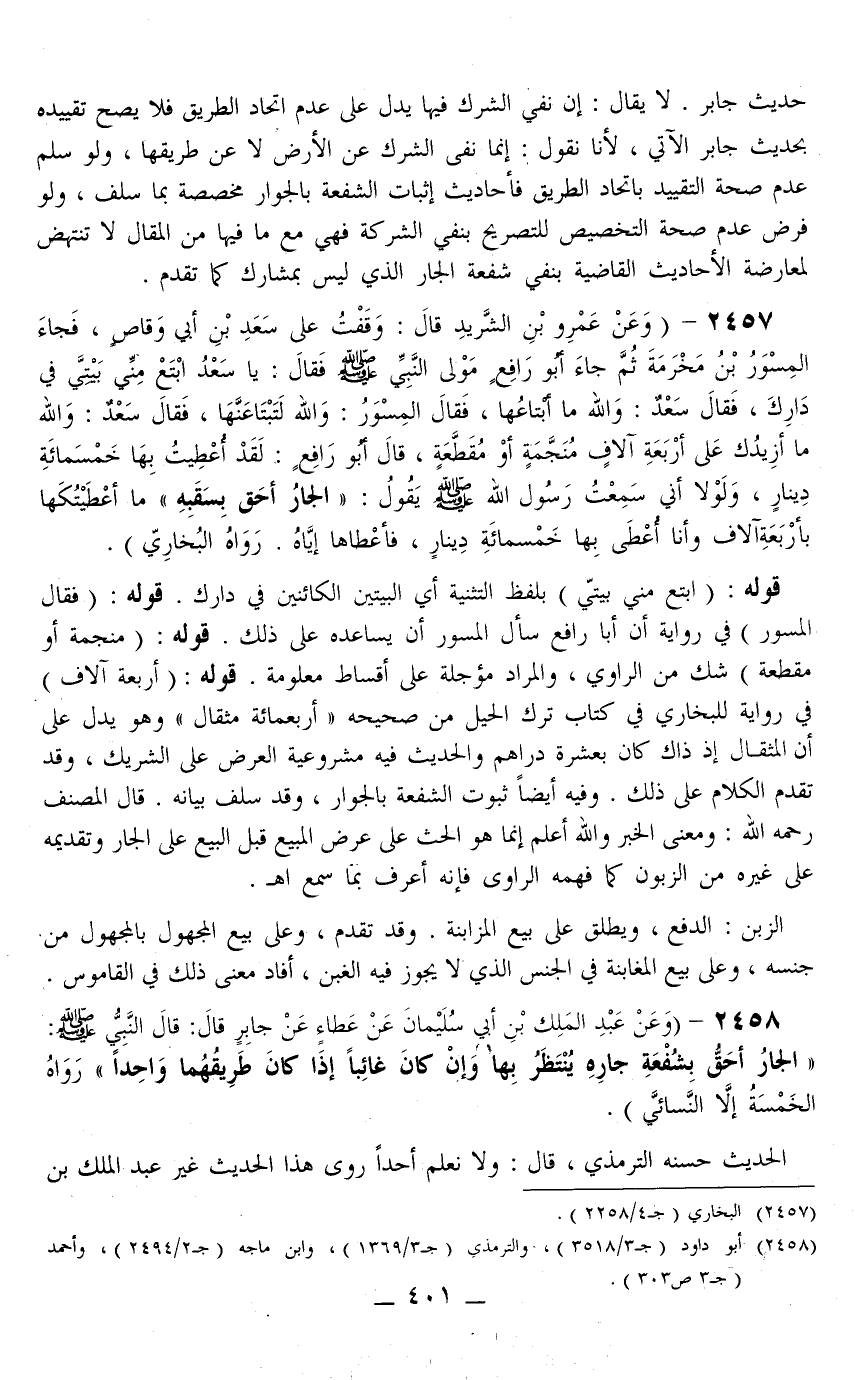 حديث جابر . لا يقال : إن نفي الشرك فيها يدل على عدم اتحاد الطريق فلا يصح تقييده
بحديث جابر الآتي ، لأنا نقول : إنما نفى الشرك عن الأرض لا عن طريقها ، ولو سلم
عدم صحة التقييد باتحاد الطريق فأحاديث إثبات الشفعة بالجوار مخصصة بما سلف ، ولو
فرض عدم صحة التخصيص للتصريح بنفي الشركة فهي مع ما فيها من المقال لا تنتهض
لمعارضة الأحاديث القاضية بنفي شفعة الجار الذي ليس بمشارك كما تقدم .
٢٤٥٧ – ( وَعَنْ عَمْرِو بْنِ الشَّرِيدِ قالَ : وَقَفْتُ على سَعَدِ بْنِ أبي وَقاصٍ ، فَجاءَ
المِسْوَرُ بْنُ مَخْرَمَةَ ثُمَّ جاءَ أبُو رَافِعٍ مَوْلى النَّبِيِّ ﷺ فَقالَ : يا سَعْدُ ابْتَعْ مِنِّي بَيْتَيَّ في
دَارِكَ ، فَقالَ سَعْدٌ : وَالله ما أبْتاعُها ، فَقالَ المِسْوَرُ : وَالله لَتَبْتَاعَنَّهَا ، فَقالَ سَعْدٌ : وَالله
ما أزِيدُك عَلى أرْبَعَةِ آلافٍ مُنَجَّمَةٍ أوْ مُقَطَّعَةٍ ، قالَ أبُو رَافِعٍ : لَقَدْ أُعْطِيتُ بِهَا خَمْسَمائَةِ
دِينارٍ ، وَلَوْلا أني سَمِعْتُ رَسُول الله ﷺ يَقُولُ : « الجارُ أحَق بِسَقَبِهِ » ما أعْطَيْتُكَها
بأرْبَعَةِ آلاف وأنا أُعْطَى بِها خَمْسمائَةِ دِينارٍ ، فَأعْطاها إيَّاهُ . رَوَاهُ البُخاريّ ) .
قوله : ( ابتع مني بيتيّ ) بلفظ التثنية أي البيتين الكائنين في دارك . قوله : ( فقال
المسور ) في رواية أن أبا رافع سأل المسور أن يساعده على ذلك . قوله : ( منجمة أو
مقطعة ) شك من الراوي ، والمراد مؤجلة على أقساط معلومة . قوله : ( أربعة آلاف )
في رواية للبخاري في كتاب ترك الحيل من صحيحه « أربعمائة مثقال » وهو يدل على
أن المثقال إذ ذاك كان بعشرة دراهم والحديث فيه مشروعية العرض على الشريك ، وقد
تقدم الكلام على ذلك . وفيه أيضاً ثبوت الشفعة بالجوار ، وقد سلف بيانه . قال المصنف
رحمه الله : ومعنى الخبر والله أعلم إنما هو الحث على عرض المبيع قبل البيع على الجار وتقديمه
على غيره من الزبون كما فهمه الراوى فإنه أعرف بما سمع اهـ .
الزبن : الدفع ، ويطلق على بيع المزابنة . وقد تقدم ، وعلى بيع المجهول بالمجهول من
جنسه ، وعلى بيع المغابنة في الجنس الذي لا يجوز فيه الغبن ، أفاد معنى ذلك في القاموس .
٢٤٥٨ – (وَعَنْ عَبْدِ المَلِك بْنِ أبي سُلَيْمانَ عَنْ عَطاءٍ عَنْ جابِرٍ قالَ: قالَ النَّبِيُّ ﷺ:
« الجارُ أحَقُّ بِشُفْعَةِ جارِهِ يُنْتَظَرُ بِها وَإنْ كانَ غائِباً إذَا كانَ طَرِيقُهُما وَاحِداً » رَوَاهُ
الخَمْسَةُ إلَّا النَّسائيَّ ) .
الحديث حسنه الترمذي ، قال : ولا نعلم أحداً روى هذا الحديث غير عبد الملك بن
(٢٤٥٧) البخاري ( جـ٤/٢٢٥٨ ) .
(٢٤٥٨) أبو داود ( جـ٣/٣٥١٨ ) ، والترمذي ( جـ٣/١٣٦٩ ) ، وابن ماجه ( جـ٢/٢٤٩٤ ) ، وأحمد
( جـ٣ ص٣٠٣ ) .
— ٤٠١ —